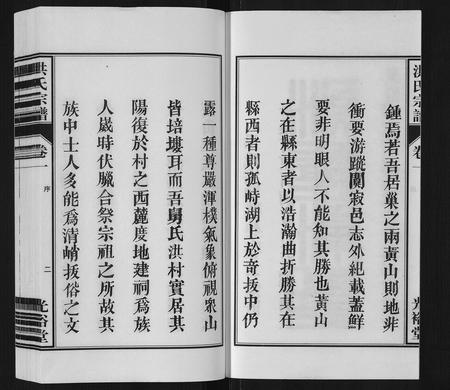 洪氏宗譜
卷一
鍾焉若吾居巢之兩黃山則地非
衝要游蹤闃寂邑志外紀載蓋鮮
要非明眼人不能知其勝也黃山
之在縣東者以浩瀚曲折勝其在
縣西者則孤峙湖上於奇拔中仍
露一種尊嚴渾樸氣象俯視衆山
皆培塿耳而吾舅氏洪村實居其
陽復於村之西麓度地建祠爲族
人歲時伏臘合祭宗祖之所故其
族中士人多能爲清峭拔俗之文
洪氏宗譜
卷一
序
二
光裕堂
光裕堂